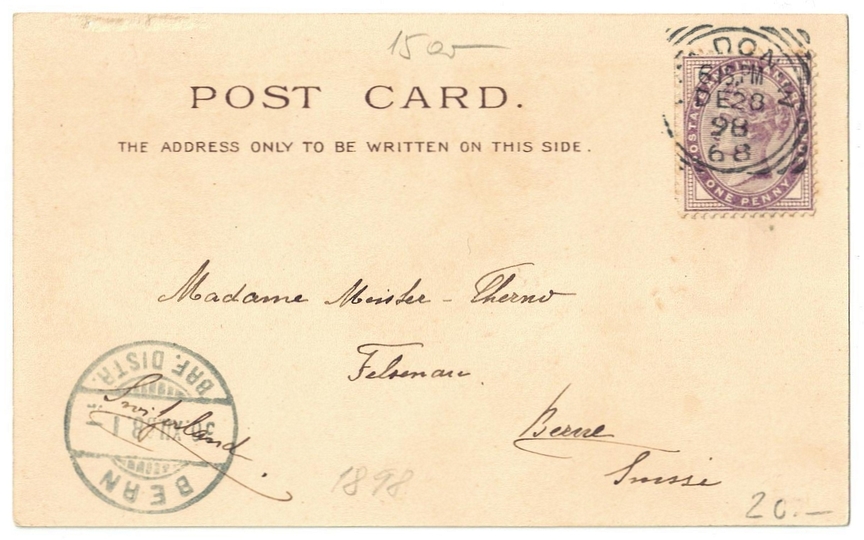 15
POST CARD.
THE ADDRESS ONLY TO BE WRITTEN ON THIS SIDE.
DON
PM
E28
98
68
ONE PENNY
Madame Meister - Therno
Felsenau.
Berne
Suisse
Switzerland.
BRF. DISTR.
30 XII. 98
BERN
1898
20.—